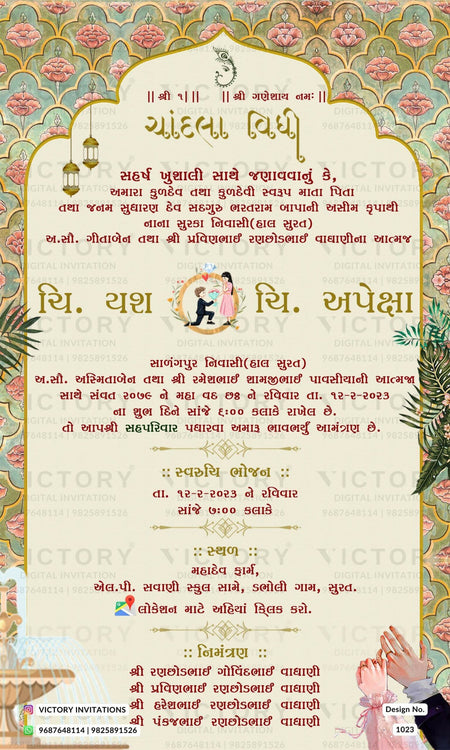 || શ્રી ૧| || || શ્રી ગણેશાય નમઃ ||
ચાંદલા વિધી
સહર્ષ ખુશાલી સાથે જણાવવાનું કે,
અમારા કુળદેવ તથા કુળદેવી સ્વરૂપ માતા પિતા
તથા જનમ સુધારણ દેવ સદગુરુ ભરતરામ બાપાની અસીમ કૃપાથી
નાના સુરકા નિવાસી(હાલ સુરત)
અ.સૌ. ગીતાબેન તથા શ્રી પ્રવિણભાઈ રણછોડભાઈ વાઘાણીના આત્મજ
ચિ. યશ ચિ. અપેક્ષા
સાળંગપુર નિવાસી(હાલ સુરત)
અ.સૌ. અસ્મિતાબેન તથા શ્રી રમેશભાઈ શામજીભાઈ પાવસીયાની આત્મજા
સાથે સંવત ૨૦૭૯ ને મહા વદ છઠ્ઠ ને રવિવાર તા. ૧૨-૨-૨૦૨૩
ના શુભ દિને સાંજે ૬:૦૦ કલાકે રાખેલ છે.
તો આપશ્રી સહપરિવાર પધારવા અમારૂ ભાવભર્યું આમંત્રણ છે.
:: સ્વરુચિ ભોજન ::
તા. ૧૨-૨-૨૦૨૩ ને રવિવાર
સાંજે ૭:૦૦ કલાકે
:: સ્થળ ::
મહાદેવ ફાર્મ,
એલ.પી. સવાણી સ્કુલ સામે, ડભોલી ગામ, સુરત.
લોકેશન માટે અહિયાં ક્લિક કરો.
:: નિમંત્રણ ::
શ્રી રણછોડભાઈ ગોવિંદભાઈ વાઘાણી
શ્રી પ્રવિણભાઈ રણછોડભાઈ વાઘાણી
શ્રી હરેશભાઈ રણછોડભાઈ વાઘાણી
શ્રી પંકજભાઈ રણછોડભાઈ વાઘાણી
VICTORY INVITATIONS
9687648114 | 9825891526
Design No.
1023